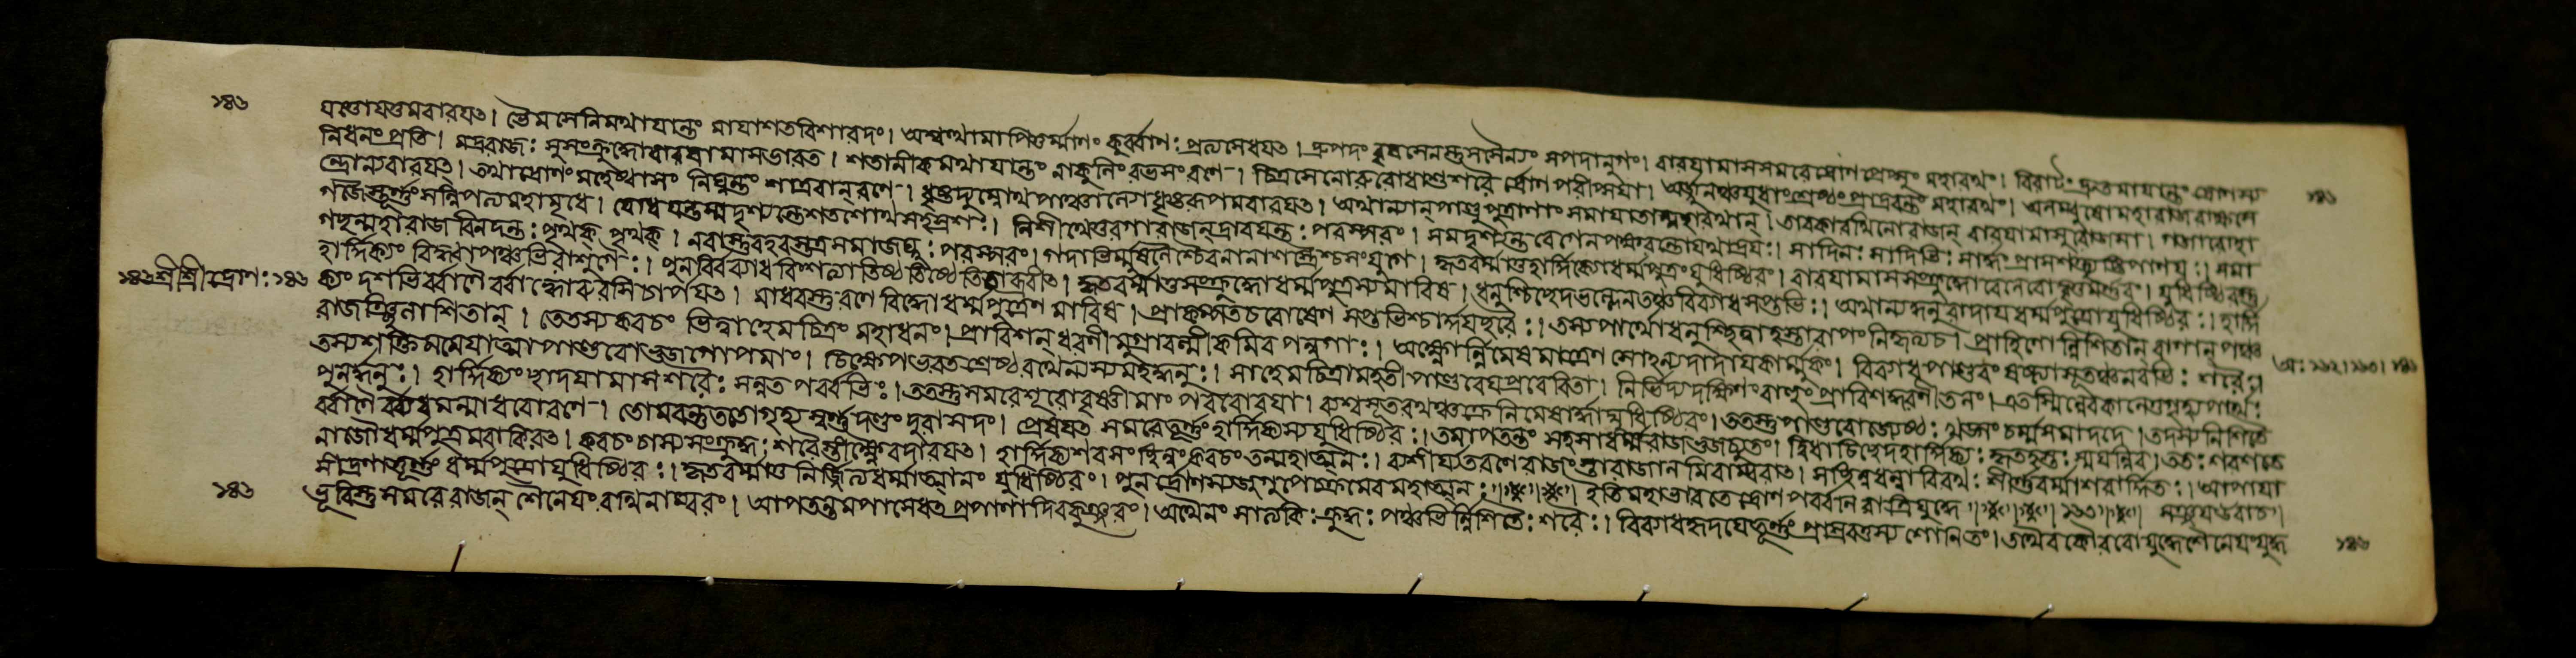 ১৪৬ যত্তোযত্তমবারযৎ। ভৈমসেনিমথাযান্তং মাযাশতবিশারদং। অশ্বত্থামাপিতুর্ম্মাণং কুর্ব্বাণঃ প্রত্যসেধযৎ। দ্রুপদং বৃষসেনস্তুসসৈন্যং সপদানুগং। বারযামাসসমরেদ্রোণপ্রেপ্সুং মহারথং। বিরাটং দ্রুতমাযান্তং দ্রোণস্য
নিধনংপ্রতি। মদ্ররাজঃ সুসংক্রুদ্ধোবারযামাসভারত। শতানীকমথাযান্তং নাকুলিংরভসংরণে। চিত্রসেনোরুরোধাশুশরৈর্দ্রোণপরীপ্সযা। অর্জ্জুনঞ্চযুধাংশ্রেষ্ঠংপ্রাদ্রবন্তং মহারথং। অলম্বুষোমহারাজরাক্ষসে ১৪৬
ন্দ্রোন্যবারযৎ। তথাদ্রোণংমহেষ্বাসং নিঘ্নন্তং শাত্রবান্‌রণে। ধৃষ্টদ্যুম্নোথপাঞ্চাল্যোহৃষ্টরূপমবারযৎ। অথান্যান্‌পাণ্ডুপুত্রাণাং সমাযাতান্মহারথান্। তাবকারথিনোরাজন্ বারযামাসুরোজসা। গজারোহা
গজৈস্তূর্ণ্ণংসন্নিপত্যমহামৃধে। যোধযন্তস্মদৃশ্যন্তেশতশোথসহস্রশঃ। নিশীথেতুরগারাজন্‌দ্রাবযন্তঃ পরস্পরং। সমদৃশ্যন্তবেগেনপক্ষবন্তোযথাদ্রযঃ। সাদিনঃ সাদিভিঃ সার্দ্ধংপ্রাসশক্ত্যৃষ্টিপাণযঃ। সমা
গছন্মহারাজবিনদন্তঃ পৃথক্ পৃথক্। নরাস্তুবহবস্তত্রসমাজঘ্নুঃ পরস্পরং। গদাভির্ম্মুষলৈশ্চৈবনানাশস্ত্রৈশ্চসংযুগে। কৃতবর্ম্মাতুহার্দ্দিক্যোধর্ম্মপুত্রংযুধিষ্ঠিরং। বারযামাসসংক্রুদ্ধোবেলেবোদ্বৃত্তমর্ণবং। যুধিষ্ঠিরস্তু
হার্দ্দিক্যং বিদ্ধ্বাপঞ্চভিরাশুগৈঃ। পুনর্বিব্যাধবিংশত্যাতিষ্ঠতিষ্ঠেতিচাব্রবীৎ। কৃতবর্ম্মাতুসংক্রুদ্ধোধর্ম্মপুত্রস্যমারিষ। ধনুশ্চিছেদভল্লেনতঞ্চবিব্যাধসপ্তভিঃ। অথান্যদ্ধনুরাদাযধর্ম্মপুত্রোযুধিষ্ঠিরঃ। হার্দ্দি
১৪৬ শ্রীশ্রীদ্রোণঃ ১৪৬ ক্যং দশভির্ব্বাণৈর্ব্বাহ্বোরুরসিচার্পযৎ। মাধবস্তুরণেবিদ্ধোধর্ম্মপুত্রেণমারিষ। প্রাকম্পতচরোষেণ সপ্তভিশ্চার্দ্দযছরৈঃ। তস্যপার্থোধনুশ্ছিত্বাহস্তাবাপংনিকৃত্যচ। প্রাহিণোন্নিশিতান্‌বাণান্‌পঞ্চ
রাজঞ্ছিলাশিতান্। তেতস্যকবচং ভিত্বাহেমচিত্রং মহাধনং। প্রাবিশন্‌ধরণীমুগ্রাবল্মীকমিবপন্নগাঃ। অক্ষ্ণোর্ন্নিমেষমাত্রেণ সোহন্যদাদাযকার্ম্মুকং। বিব্যাধপাণ্ডবংষষ্ট্যাসূতঞ্চনবভিঃ শরৈঃ। অঃ ১১২।১১৩।১৪৬
তস্যশক্তিমমেযাত্মাপাণ্ডবোভুজগোপমাং। চিক্ষেপভরতশ্রেষ্ঠরথেন্যস্যমহদ্ধনুঃ। সাহেমচিত্রামহতীপাণ্ডবেযপ্রবেরিতা। নির্ভিদ্যদক্ষিণংবাহুং প্রাবিশদ্ধরণীতলং। এতস্মিন্নেবকালেতুগৃহ্যপার্থঃ
পুনর্দ্ধনুঃ। হার্দ্দিক্যং ছাদযামাসশরৈঃ সন্নতপর্ব্বভিঃ। ততস্তুসমরেশূরোবৃষ্ণীনাং প্রবরোরথী। ব্যশ্বসূতরথঞ্চক্রেনিমেষার্দ্ধাদ্যুধিষ্ঠিরং। ততস্তুপাণ্ডবোজ্যেষ্ঠঃ খড়্গংচর্ম্মসমাদদে। তদস্যনিশিতৈ
র্ব্বাণৈর্ব্ব্যধমন্মাধবোরণে। তোমরন্তুততোগৃহ্যস্বর্ণ্ণদণ্ডং দুরাসদং। প্রেষযৎ সমরেতূর্ণ্ণংহার্দ্দিক্যস্যযুধিষ্ঠিরঃ। তমাপতন্তং সহসাধর্ম্মরাজভুজচ্যুতং। দ্বিধাচিছেদহার্দ্দিক্যঃ কৃতহস্তঃ স্ময়ন্নিব। ততঃ শরশতে
নাজৌধর্ম্মপুত্রমবাকিরৎ। কবচংচাস্যসংক্রুদ্ধঃ শরৈস্তীক্ষ্ণৈরদারযৎ। হার্দ্দিক্যশরসংছিন্নংকবচংতন্মহাত্মনঃ। ব্যশীর্য্যতরণেরাজংস্তারাজালমিবাম্বরাৎ। সছিন্নধন্বাবিরথঃ শীর্ণ্ণবর্ম্মাশরার্দ্দিতঃ। আপাযা
সীদ্রণাত্তূর্ণ্ণংধর্ম্মপুত্রোযুধিষ্ঠিরঃ। কৃতবর্ম্মাতুনির্জ্জিত্যধর্ম্মাত্মানং যুধিষ্ঠিরং। পুনর্দ্রোণস্যজুগুপেচক্রমেবমহাত্মনঃ।। ইতিমহাভারতেদ্রোণপর্ব্বনিরাত্রিযুদ্ধে।। ১১৩।। সঞ্জযউবাচ।
১৪৬ ভূরিস্তুসমরেরাজন্‌শৈনেযংরথিনাম্বরং। আপতন্তমপাসেধৎপ্রপাণাদিবকুঞ্জরং। অথৈনং সাত্যকিঃ ক্রুদ্ধঃ পঞ্চভির্ন্নিশিতৈঃ শরৈঃ। বিব্যাধহৃদযেতূর্ণ্ণংপ্রাস্রবত্তস্যশোনিতং। তথৈবকৌরবোযুদ্ধেশৈনেযংযুদ্ধ ১৪৬